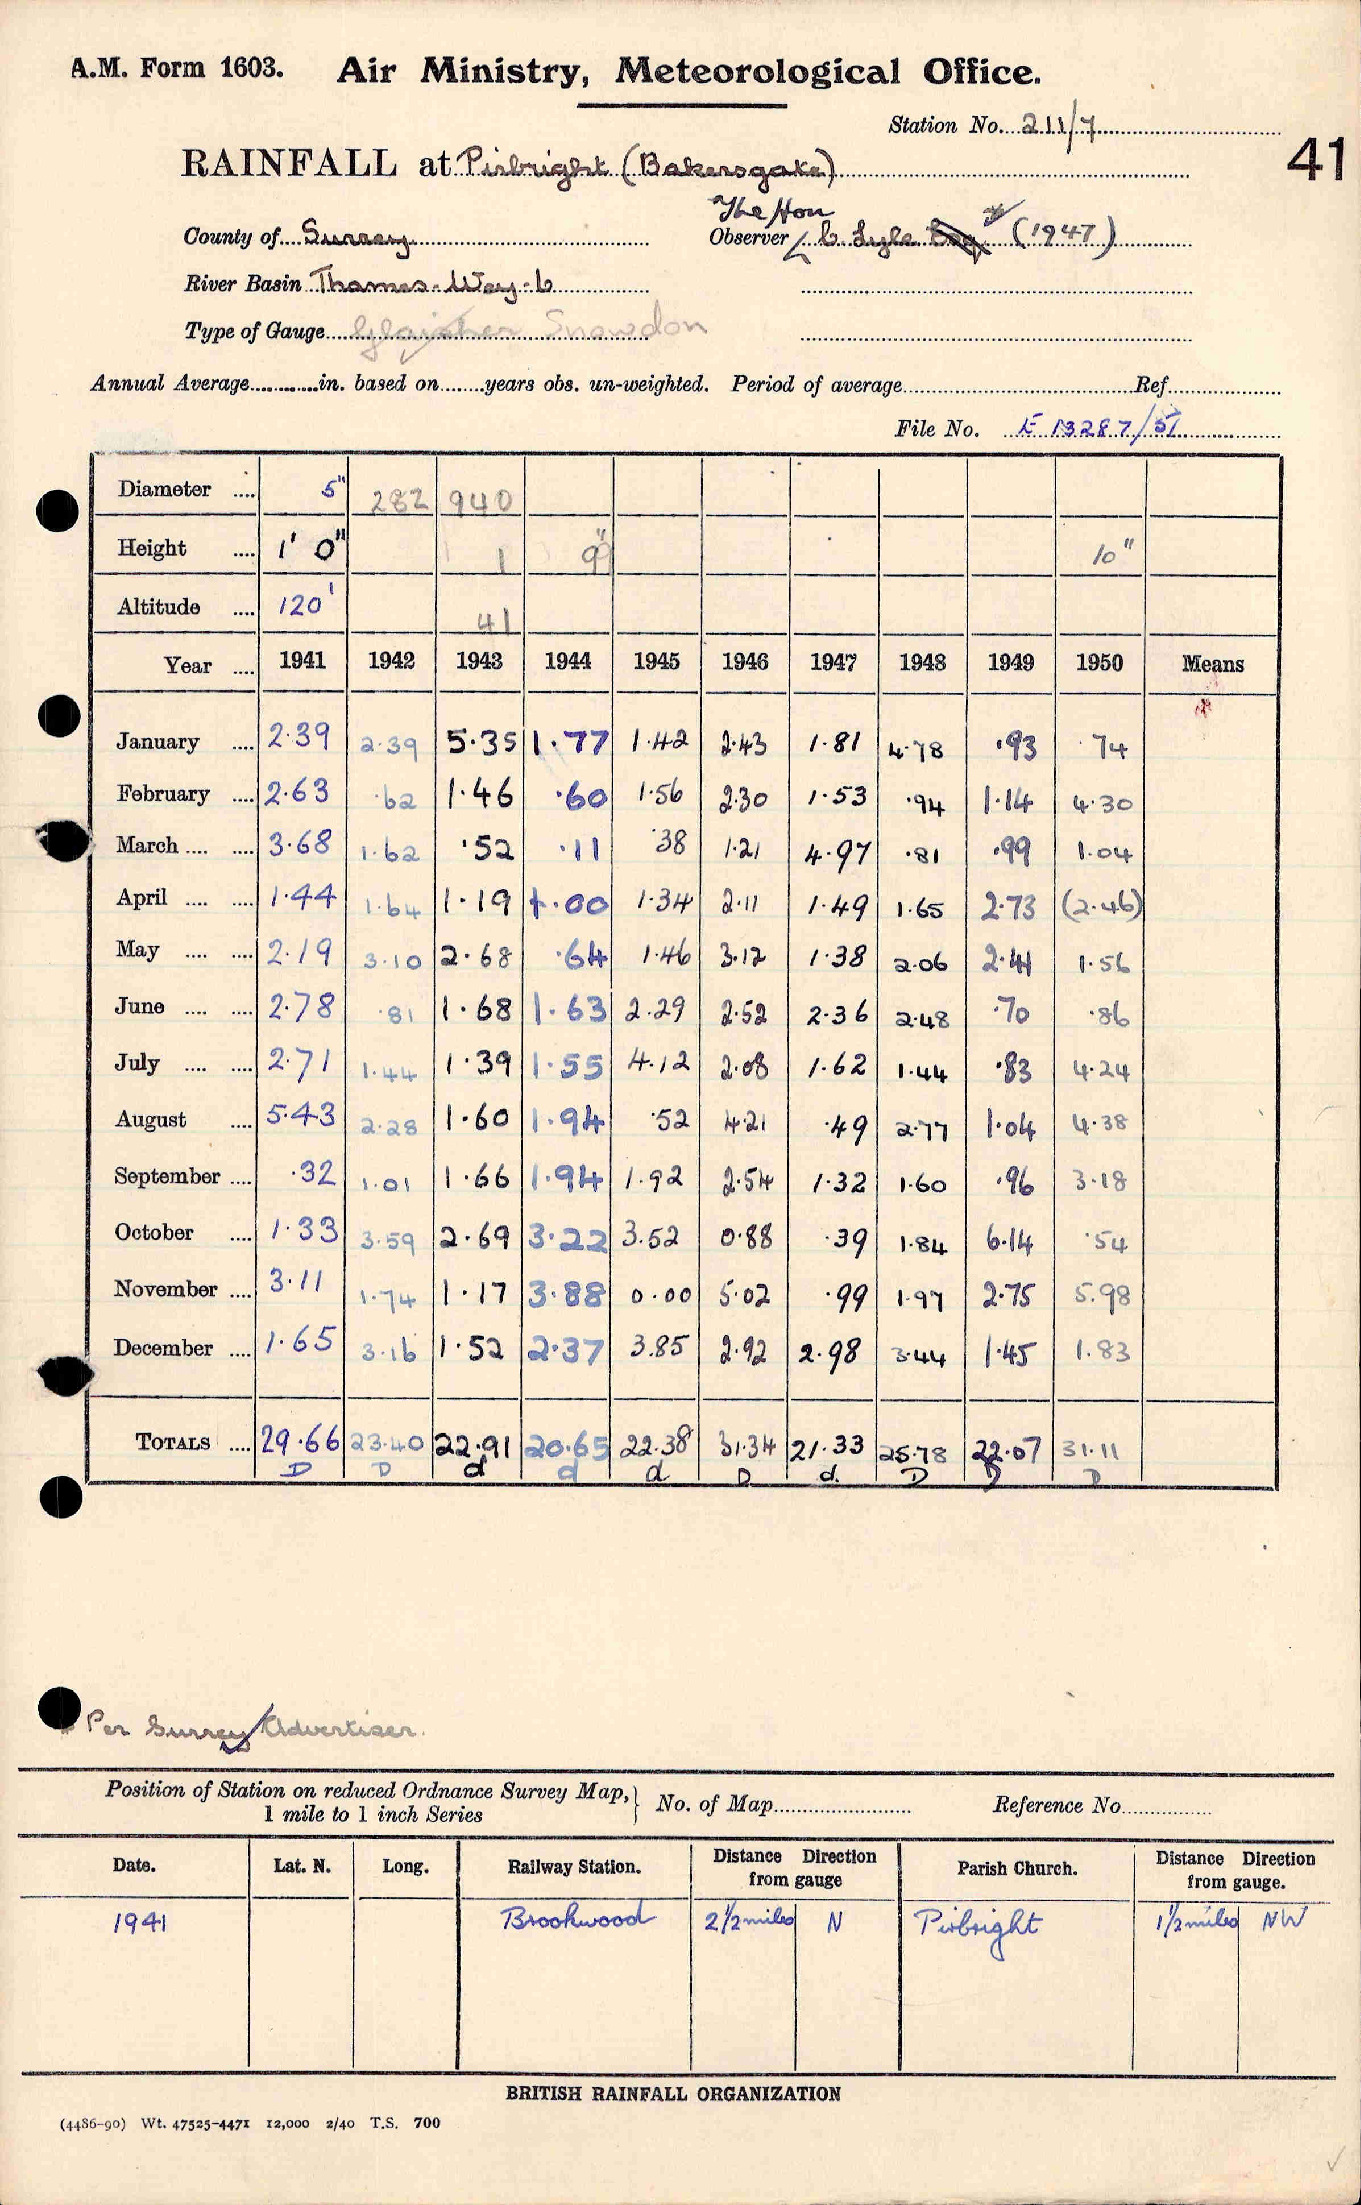 A.M. Form 1603. Air Ministry, Meteorological Office.
Station No. 211/7
41
RAINFALL at Pirbright (Bakersgate)
The Hon
County of Surrey Observer C. Lyle Esq * (1947)
River Basin Thames-Wey-L
Type of Gauge Glaisher Snowdon
Annual Average in. based on years obs. un-weighted. Period of average Ref
File No. E 13287/51
Diameter .... 5" 282 940
Height .... 1' 0" 1 9" 10"
Altitude .... 120' 41
Year .... 1941 1942 1943 1944 1945 1946 1947 1948 1949 1950 Means
January .... 2.39 2.39 5.35 1.77 1.42 2.43 1.81 4.78 .93 .74
February .... 2.63 .62 1.46 .60 1.56 2.30 1.53 .94 1.14 4.30
March .... .... 3.68 1.62 .52 .11 .38 1.21 4.97 .81 .99 1.04
April .... .... 1.44 1.64 1.19 1.00 1.34 2.11 1.49 1.65 2.73 (2.46)
May .... .... 2.19 3.10 2.68 .64 1.46 3.12 1.38 2.06 2.41 1.56
June .... .... 2.78 .81 1.68 1.63 2.29 2.52 2.36 2.48 .70 .86
July .... .... 2.71 1.44 1.39 1.55 4.12 2.08 1.62 1.44 .83 4.24
August .... 5.43 2.28 1.60 1.94 .52 4.21 .49 2.77 1.04 4.38
September .... .32 1.01 1.66 1.94 1.92 2.54 1.32 1.60 .96 3.18
October .... 1.33 3.59 2.69 3.22 3.52 0.88 .39 1.84 6.14 .54
November .... 3.11 1.74 1.17 3.88 0.00 5.02 .99 1.97 2.75 5.98
December .... 1.65 3.16 1.52 2.37 3.85 2.92 2.98 3.44 1.45 1.83
TOTALS .... 29.66 23.40 22.91 20.65 22.38 31.34 21.33 25.78 22.07 31.11
D D d d d D d. D D D
* Per Surrey Advertiser.
Position of Station on reduced Ordnance Survey Map, } No. of Map Reference No.
1 mile to 1 inch Series
Date. Lat. N. Long. Railway Station. Distance from gauge Direction Parish Church. Distance from gauge. Direction
1941 Brookwood 2½ miles N Pirbright 1½ miles NW
BRITISH RAINFALL ORGANIZATION
(4486-90) Wt. 47525-4471 12,000 2/40 T.S. 700